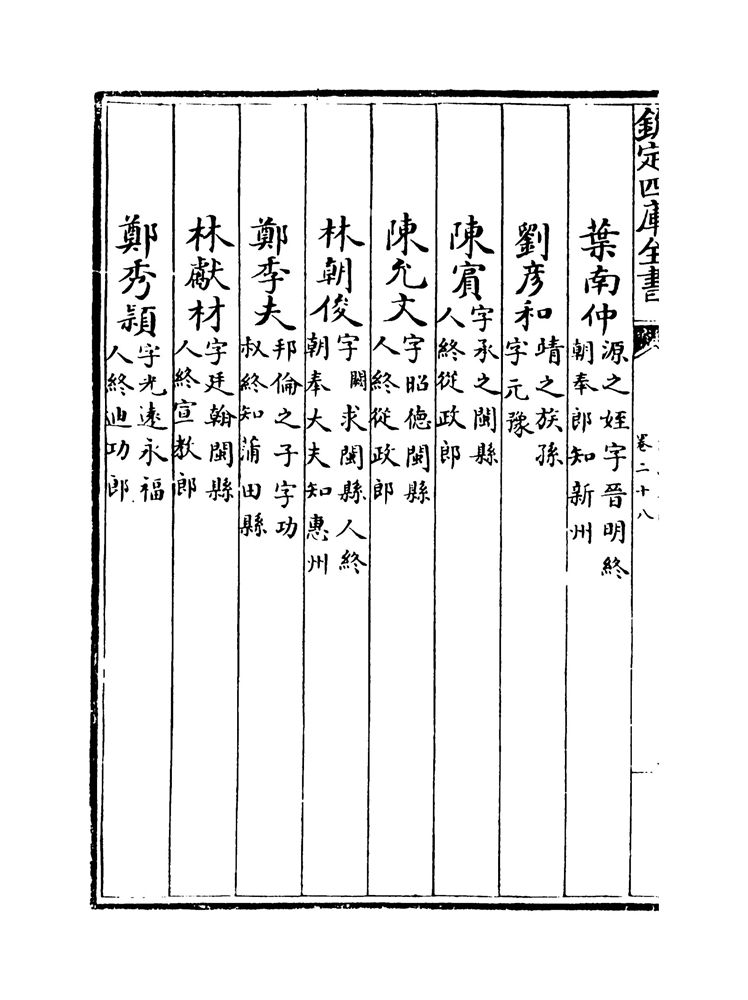 欽定四庫全書
卷二十八
葉南仲源之姪字晉明終
朝奉郎知新州
劉彦和靖之族孫
字元豫
陳賔字承之閩縣
人終從政郎
陳允文字昭德閩縣
人終從政郎
林朝俊字闕求閩縣人終
朝奉大夫知惠州
鄭季夫邦倫之子字功
叔終知蒲田縣
林獻材字廷翰閩縣
人終宣教郎
鄭秀頴字光遠永福
人終迪功郎